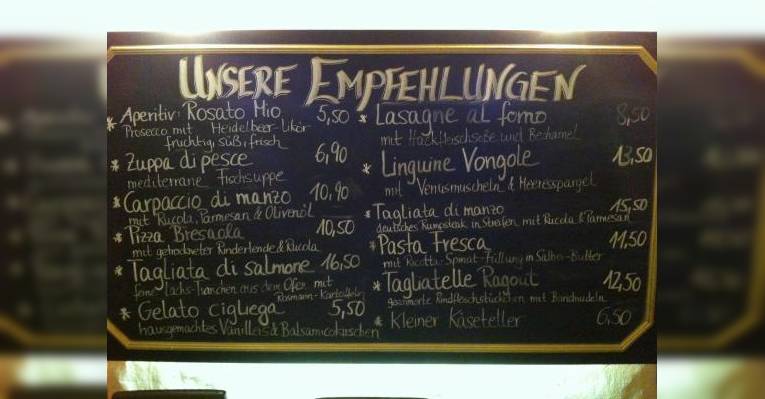 UNSERE EMPFEHLUNGEN
* Aperitiv: Rosato Mio 5,50
Prosecco mit Heidelbeer-Likör
fruchtig, süß, frisch
* Zuppa di pesce 6,90
mediterrane Fischsuppe
* Carpaccio di manzo 10,90
mit Rucola, Parmesan & Olivenöl
* Pizza Bresaola 10,50
mit getrockneter Rinderlende & Rucola
* Tagliata di salmone 16,50
feine Lachs-Tranchen aus dem Ofen mit
Rosmarin-Kartoffeln
* Gelato cigliega 5,50
hausgemachtes Vanilleis & Balsamicokirschen
* Lasagne al forno 8,50
mit Hackfleischsoße und Bechamel
* Linguine Vongole 13,50
mit Venusmuscheln & Meeresspargel
* Tagliata di manzo 15,50
deutsches Rumpsteak in Streifen mit Rucola & Parmesan
* Pasta fresca 11,50
mit Ricotta-Spinat-Füllung in Salbei-Butter
* Tagliatelle Ragout 12,50
geschmorte Rindfleischstückchen mit Bandnudeln
* Kleiner Käseteller 6,50